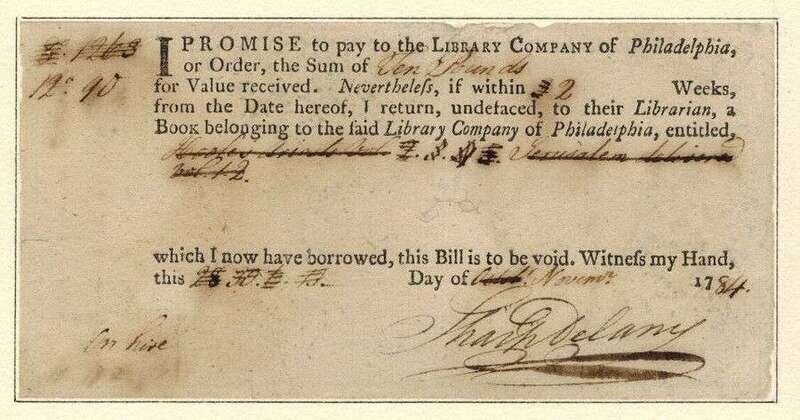 I PROMISE to pay to the LIBRARY COMPANY of Philadelphia,
or Order, the Sum of Ten Pounds
for Value received. Nevertheleſs, if within 2 Weeks,
from the Date hereof, I return, undefaced, to their Librarian, a
BOOK belonging to the ſaid Library Company of Philadelphia, entitled,
Jerusalem
vol. 1. 2.
which I now have borrowed, this Bill is to be void. Witneſs my Hand,
this Day of Novemr. 1784.
On hire
Sharp Delany